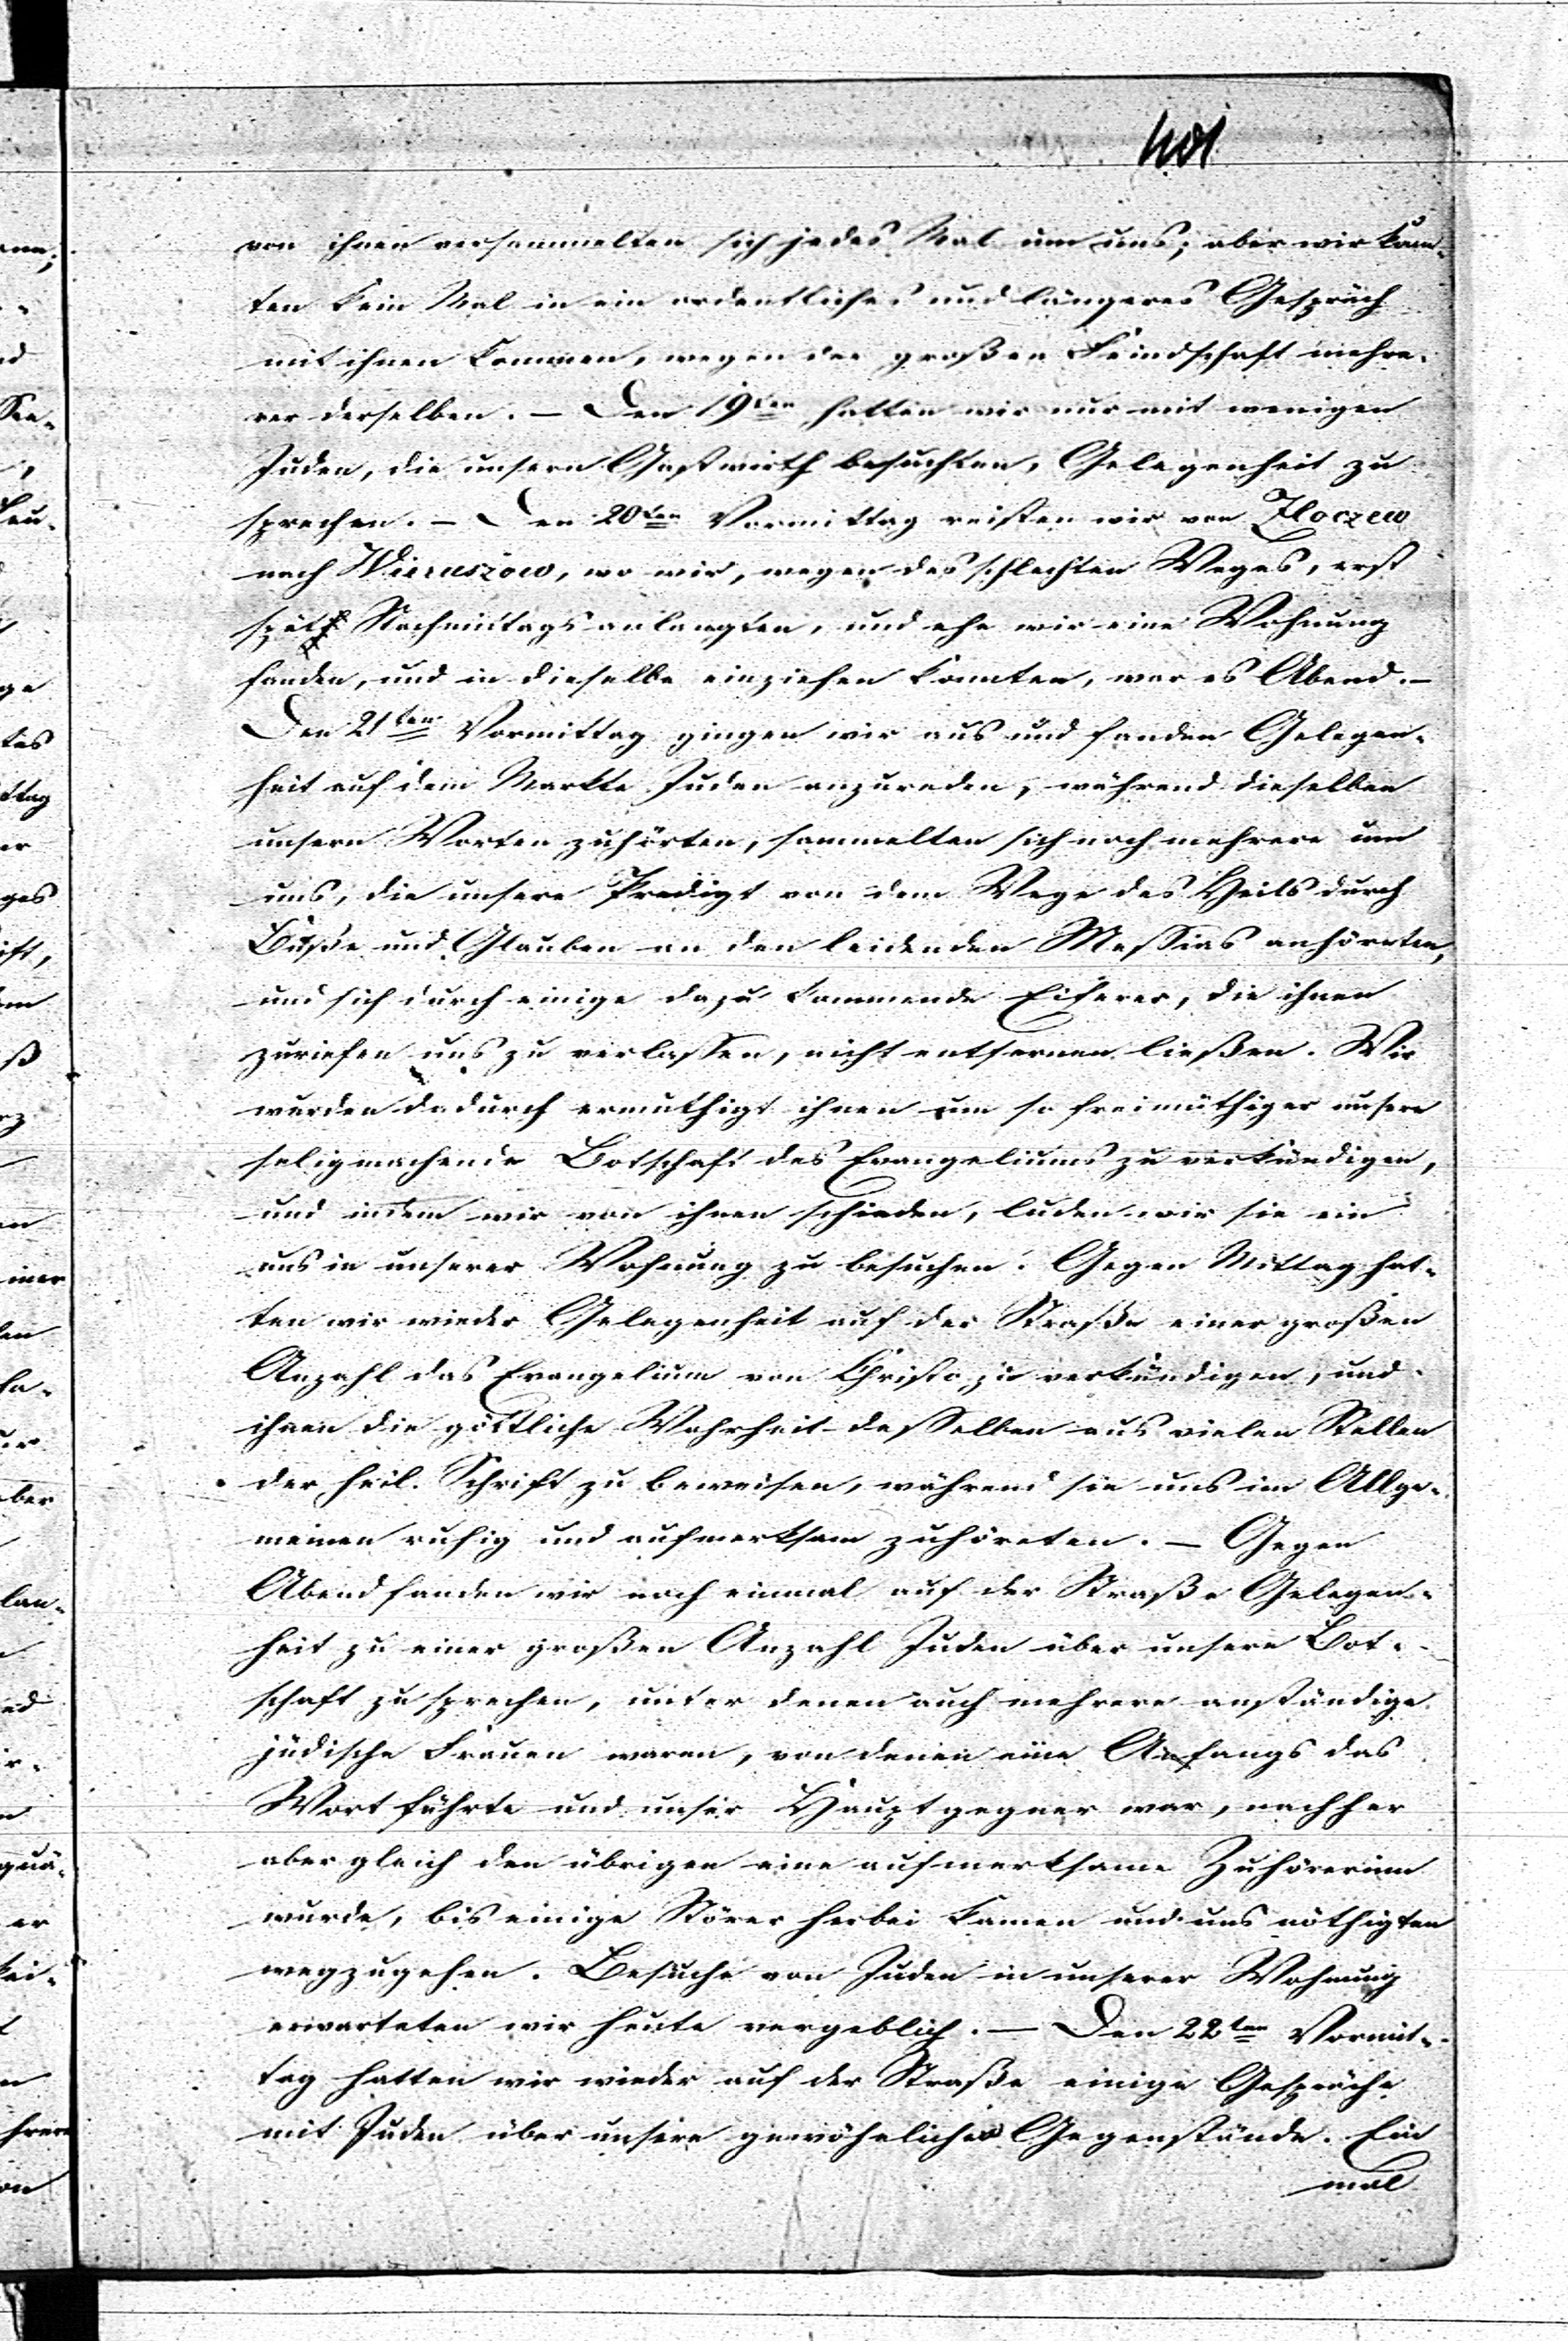 von ihnen versammelten sich jedes Mal um uns; aber wir konn-
ten kein Mal in ein ordentliches und längeres Gespräch
mit ihnen kommen, wegen der großen Feindschaft mehre-
rer derselben. — Den 19ten hatten wir nur mit wenigen
Juden, die unsern Gastwirth besuchten, Gelegenheit zu
sprechen. — Den 20ten Vormittag reisten wir von Zloczew
nach Wieruszow, wo wir, wegen des schlechten Weges, erst
spät Nachmittags anlangten, und ehe wir eine Wohnung
fanden, und in dieselbe einziehen konnten, war es Abend. —
Den 21ten Vormittag gingen wir aus und fanden Gelegen-
heit auf dem Markte Juden anzureden, während dieselben
unsern Worten zuhörten, sammelten sich noch mehrere um
uns, die unsere Predigt von dem Wege des Heils durch
Buße und Glauben an den leidenden Messias anhöreten,
und sich durch einige dazu kommende Eiferer, die ihnen
zuriefen uns zu verlassen, nicht entfernen ließen. Wir
wurden dadurch ermuthigt ihnen um so freimüthiger unsere
seligmachende Botschaft des Evangeliums zu verkündigen,
und indem wir von ihnen schieden, luden wir sie ein
uns in unserer Wohnung zu besuchen. Gegen Mittag hat-
ten wir wieder Gelegenheit auf der Straße einer großen
Anzahl das Evangelium von Christo zu verkündigen, und
ihnen die göttliche Wahrheit desselben aus vielen Stellen
der heil. Schrift zu beweisen, während sie uns im Allge-
meinen ruhig und aufmerksam zuhöreten. — Gegen
Abend fanden wir noch einmal auf der Straße Gelegen-
heit zu einer großen Anzahl Juden über unsere Bot-
schaft zu sprechen, unter denen auch mehrere anständige
jüdische Frauen waren, von denen eine Anfangs das
Wort führte und unser Hauptgegner war, nachher
aber gleich den übrigen eine aufmerksame Zuhörerinn
wurde, bis einige Störer herbei kamen und uns nöthigten
wegzugehen. Besuche von Juden in unserer Wohnung
erwarteten wir heute vergeblich. — Den 22ten Vormit-
tag hatten wir wieder auf der Straße einige Gespräche
mit Juden über unsere gewöhnliche Gegenstände. Ein
mal